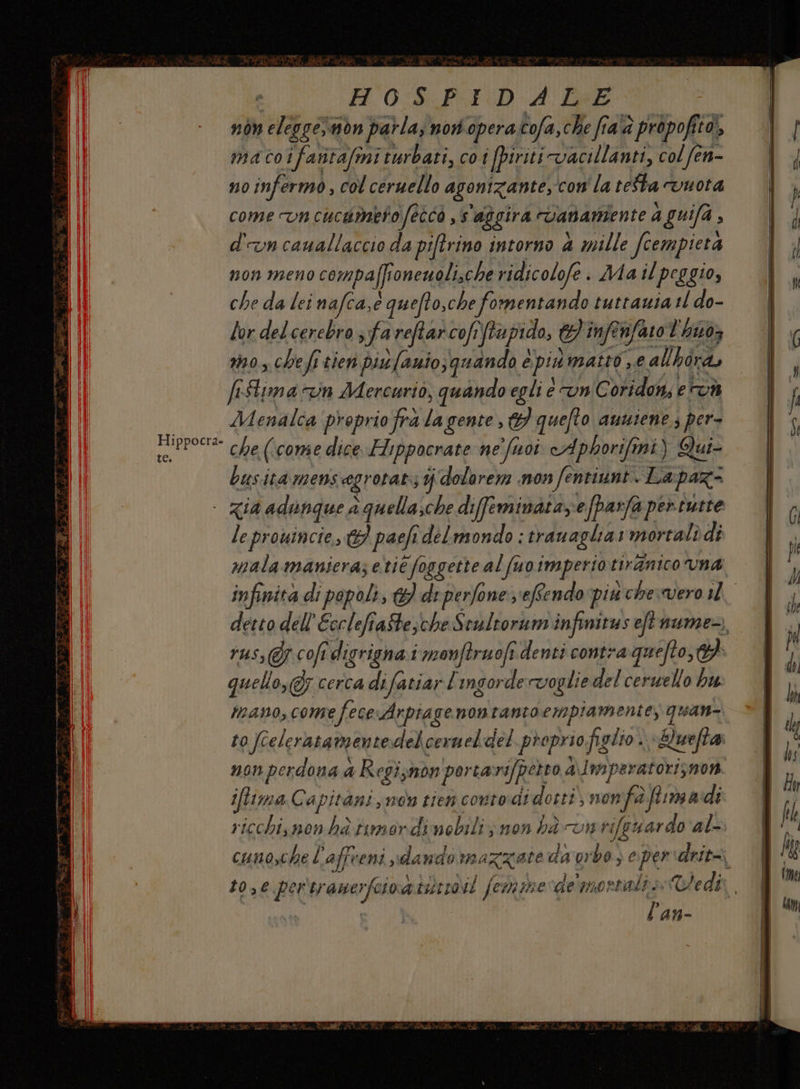 HOSPIDALE
non elegge, non parla, non opera cosa, che sia à proposito,
ma co i fantasmi turbati, co i spiriti vacillanti, col sen-
no infermo, col ceruello agonizante, con la testa vuota
come vn cucumero secco, s'aggira vanamente à guisa,
d'vn cauallaccio da pistrino intorno à mille scempietà
non meno compassioneuoli, che ridicolose. Ma il peggio,
che da lei nasca, è questo, che fomentando tuttauia il do-
lor del cerebro, fa restar così stupido, & insensato l'huo-
mo, che si tien più sauio, quando è più matto, e allhora,
si stima vn Mercurio, quando egli è vn Coridon, e vn
Menalca proprio frà la gente, & questo auuiene, per-
Hippocra-
te.
che (come dice Hippocrate ne' suoi Aphorismi) Qui-
bus ita mens ægrotat, ij dolorem non sentiunt. La paz-
zia adunque è quella, che disseminata, e sparsa per tutte
le prouincie, & paesi del mondo: trauaglia i mortali di
mala maniera, e tiè soggette al suo imperio tirānico vna
infinità di popoli, & di persone, essendo più che vero il
detto dell'Ecclesiaste, che Stultorum infinitus est nume-
rus, & così digrigna i monstruosi denti contra questo, &
quello, & cerca di satiar l'ingorde voglie del ceruello hu
mano, come fece Arpiage non tanto empiamente, quan-
to sceleratamente del ceruel del proprio figlio. Questa
non perdona à Regi, non porta rispetto à Imperatori, non
istima Capitani, non tien conto di dotti, non fà stima di
ricchi, non hà timor di nobili, non hà vn risguardo al-
cuno, che l'affreni, dando mazzate da orbo, e per drit-
to, e per trauerscio à tutto il semme de' mortali. Vedi
l'an-